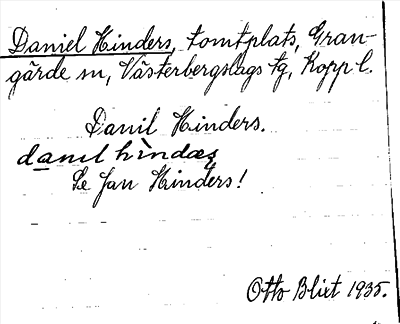 Daniel Hinders, tomtplats, Gran-
gärde sn, Västerbergslags tg, Kopp l.
Danil Hinders.
danɪl hìndæʂ
Se Jan Hinders!
Otto Blixt 1935.